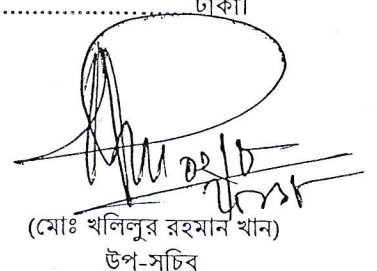 ............................ ঢাকা।
(মোঃ খলিলুর রহমান খান)
উপ-সচিব